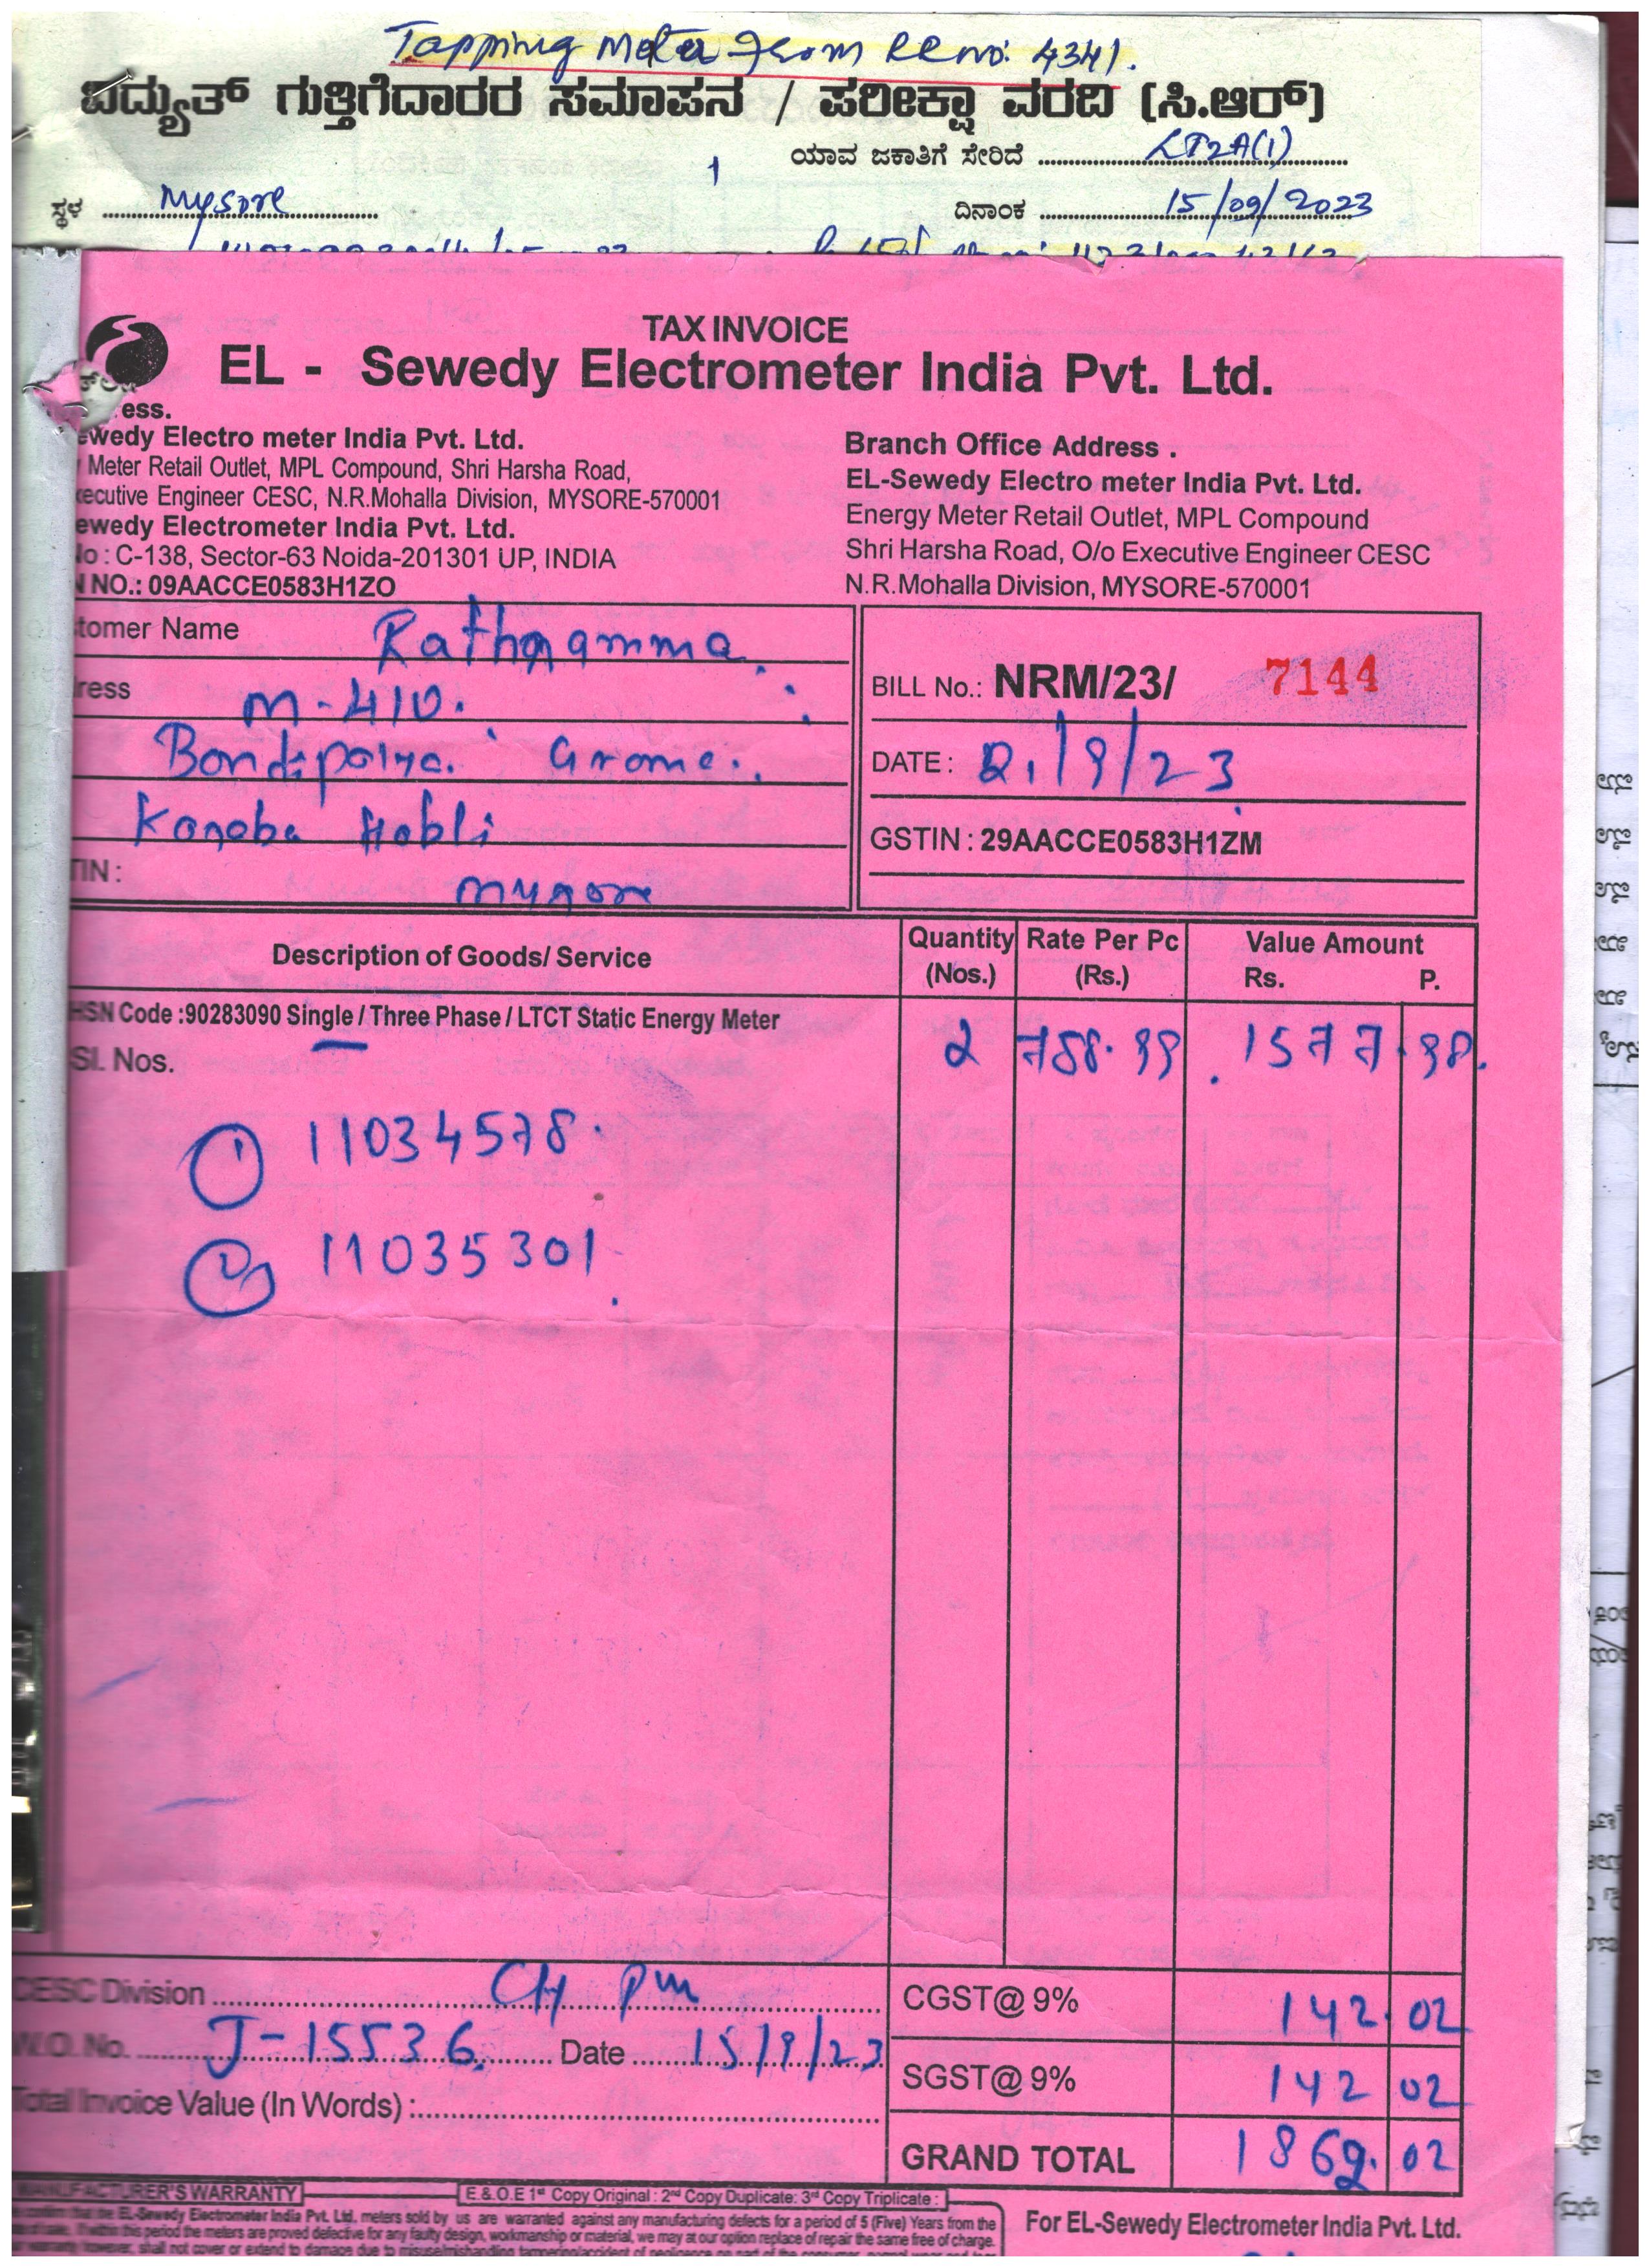 Tapping Meter from RR no: 4341.
ವಿದ್ಯುತ್ ಗುತ್ತಿಗೆದಾರರ ಸಮಾಪನ / ಪರೀಕ್ಷಾ ವರದಿ (ಸಿ.ಆರ್)
ಯಾವ ಜಕಾತಿಗೆ ಸೇರಿದೆ LT2A(1)
1
ಸ್ಥಳ Mysore ದಿನಾಂಕ 15/09/2023
TAX INVOICE
EL - Sewedy Electrometer India Pvt. Ltd.
ess.
ewedy Electro meter India Pvt. Ltd.
Meter Retail Outlet, MPL Compound, Shri Harsha Road,
xecutive Engineer CESC, N.R.Mohalla Division, MYSORE-570001
ewedy Electrometer India Pvt. Ltd.
No : C-138, Sector-63 Noida-201301 UP, INDIA
N NO.: 09AACCE0583H1ZO
Branch Office Address .
EL-Sewedy Electro meter India Pvt. Ltd.
Energy Meter Retail Outlet, MPL Compound
Shri Harsha Road, O/o Executive Engineer CESC
N.R.Mohalla Division, MYSORE-570001
tomer Name Rathnamma
ress M-410.
Bandipalya. Grama.
Kasaba Hobli
TIN : mysore
BILL No.: NRM/23/ 7144
DATE : 21/9/23
GSTIN : 29AACCE0583H1ZM
Description of Goods/ Service Quantity (Nos.) Rate Per Pc (Rs.) Value Amount Rs. P.
HSN Code :90283090 Single / Three Phase / LTCT Static Energy Meter
Sl. Nos. 2 788.99 1577.98
1 11034578
2 11035301
CESC Division
W.O. No. J-15536 Date 15/9/23
Total Invoice Value (In Words) :
CGST@ 9% 142.02
SGST@ 9% 142 02
GRAND TOTAL 1862.02
MANUFACTURER'S WARRANTY
E.& O.E 1st Copy Original : 2nd Copy Duplicate: 3rd Copy Triplicate :
the EL-Sewedy Electrometer India Pvt. Ltd. meters sold by us are warranted against any manufacturing defects for a period of 5 (Five) Years from the
If within this period the meters are proved defective for any faulty design, workmanship or material, we may at our option replace of repair the same free of charge.
For EL-Sewedy Electrometer India Pvt. Ltd.